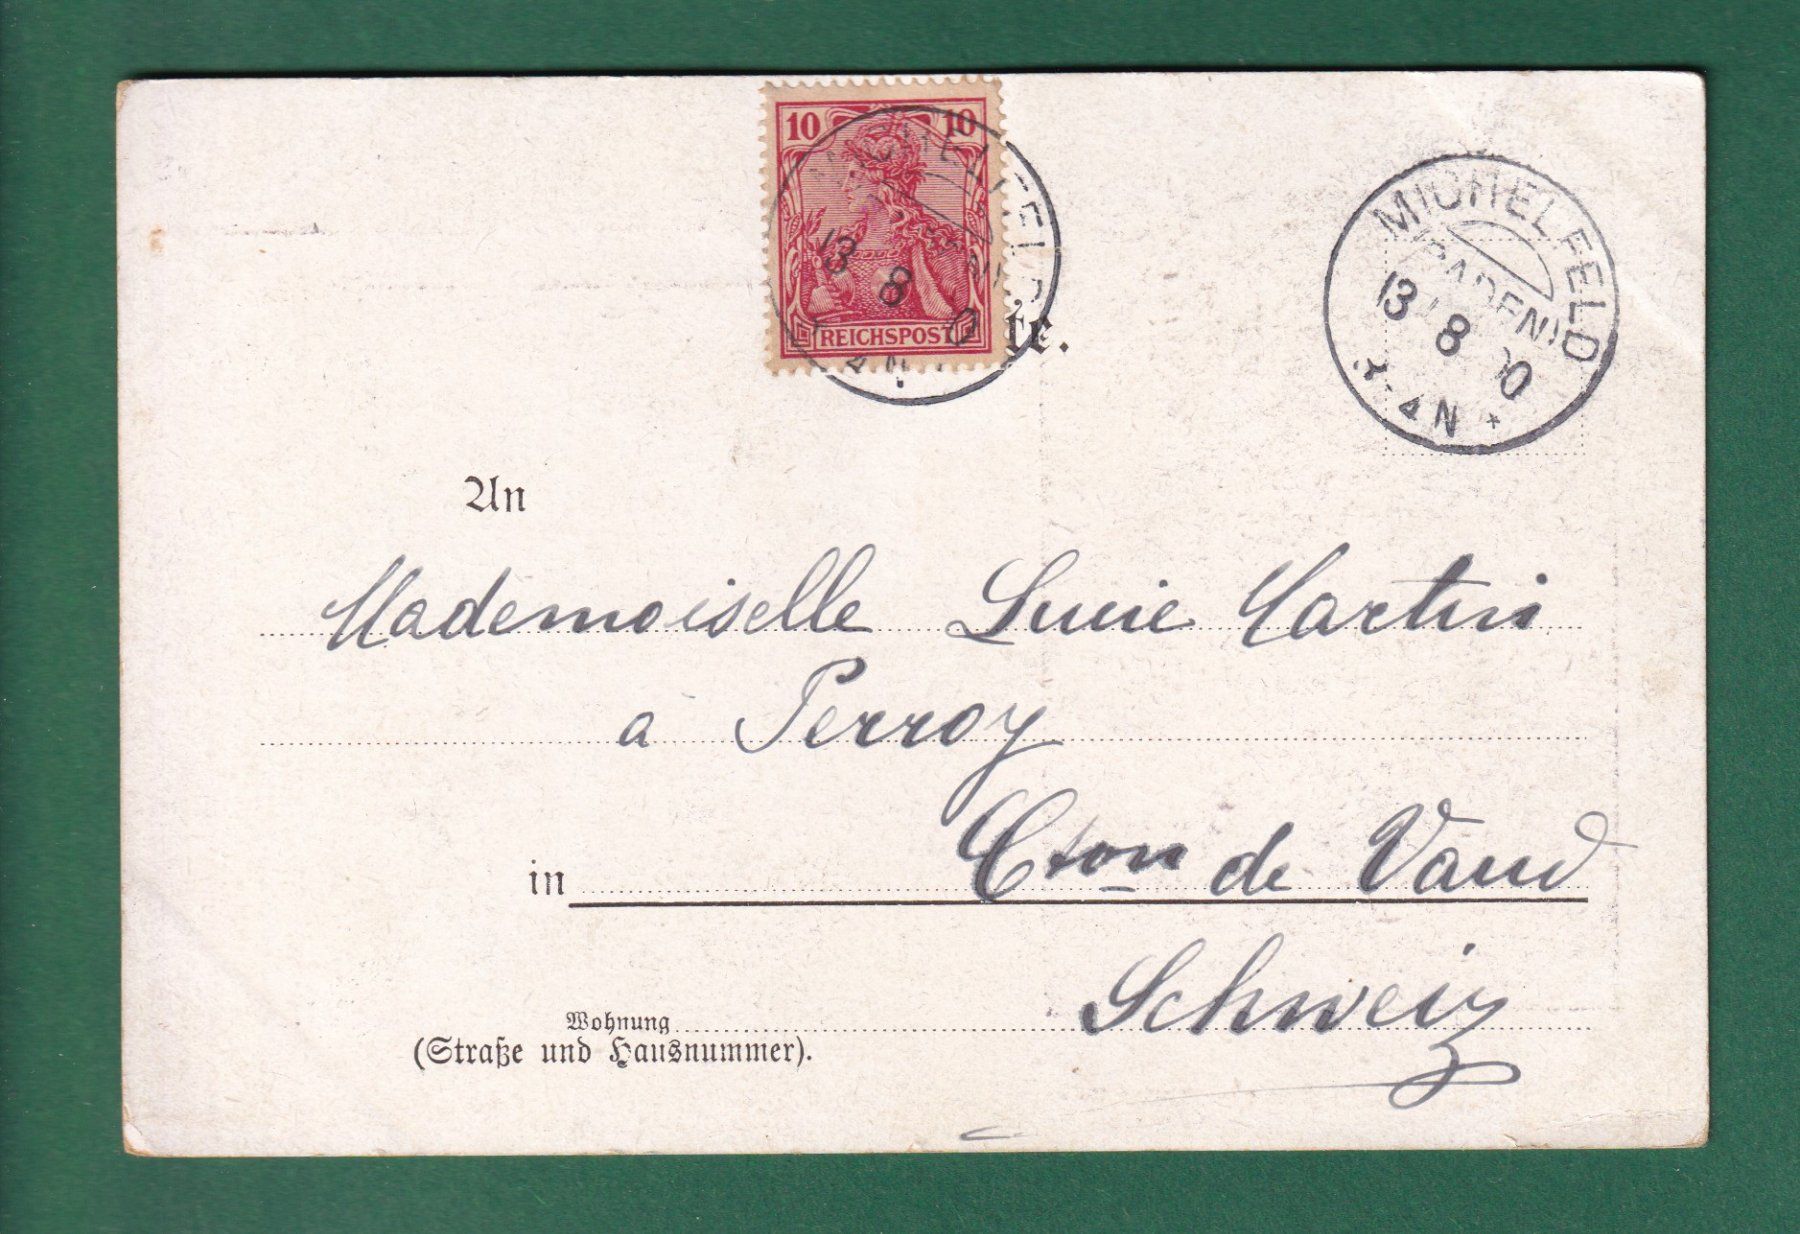 10 10
REICHSPOST
MICHELFELD
13 8
4 N
te.
MICHELFELD
(BADEN)
13 8 00
4 N *
An
Mademoiselle Lucie Martin
à Perroy
in Cton de Vaud
Schweiz
Wohnung
(Straße und Hausnummer).